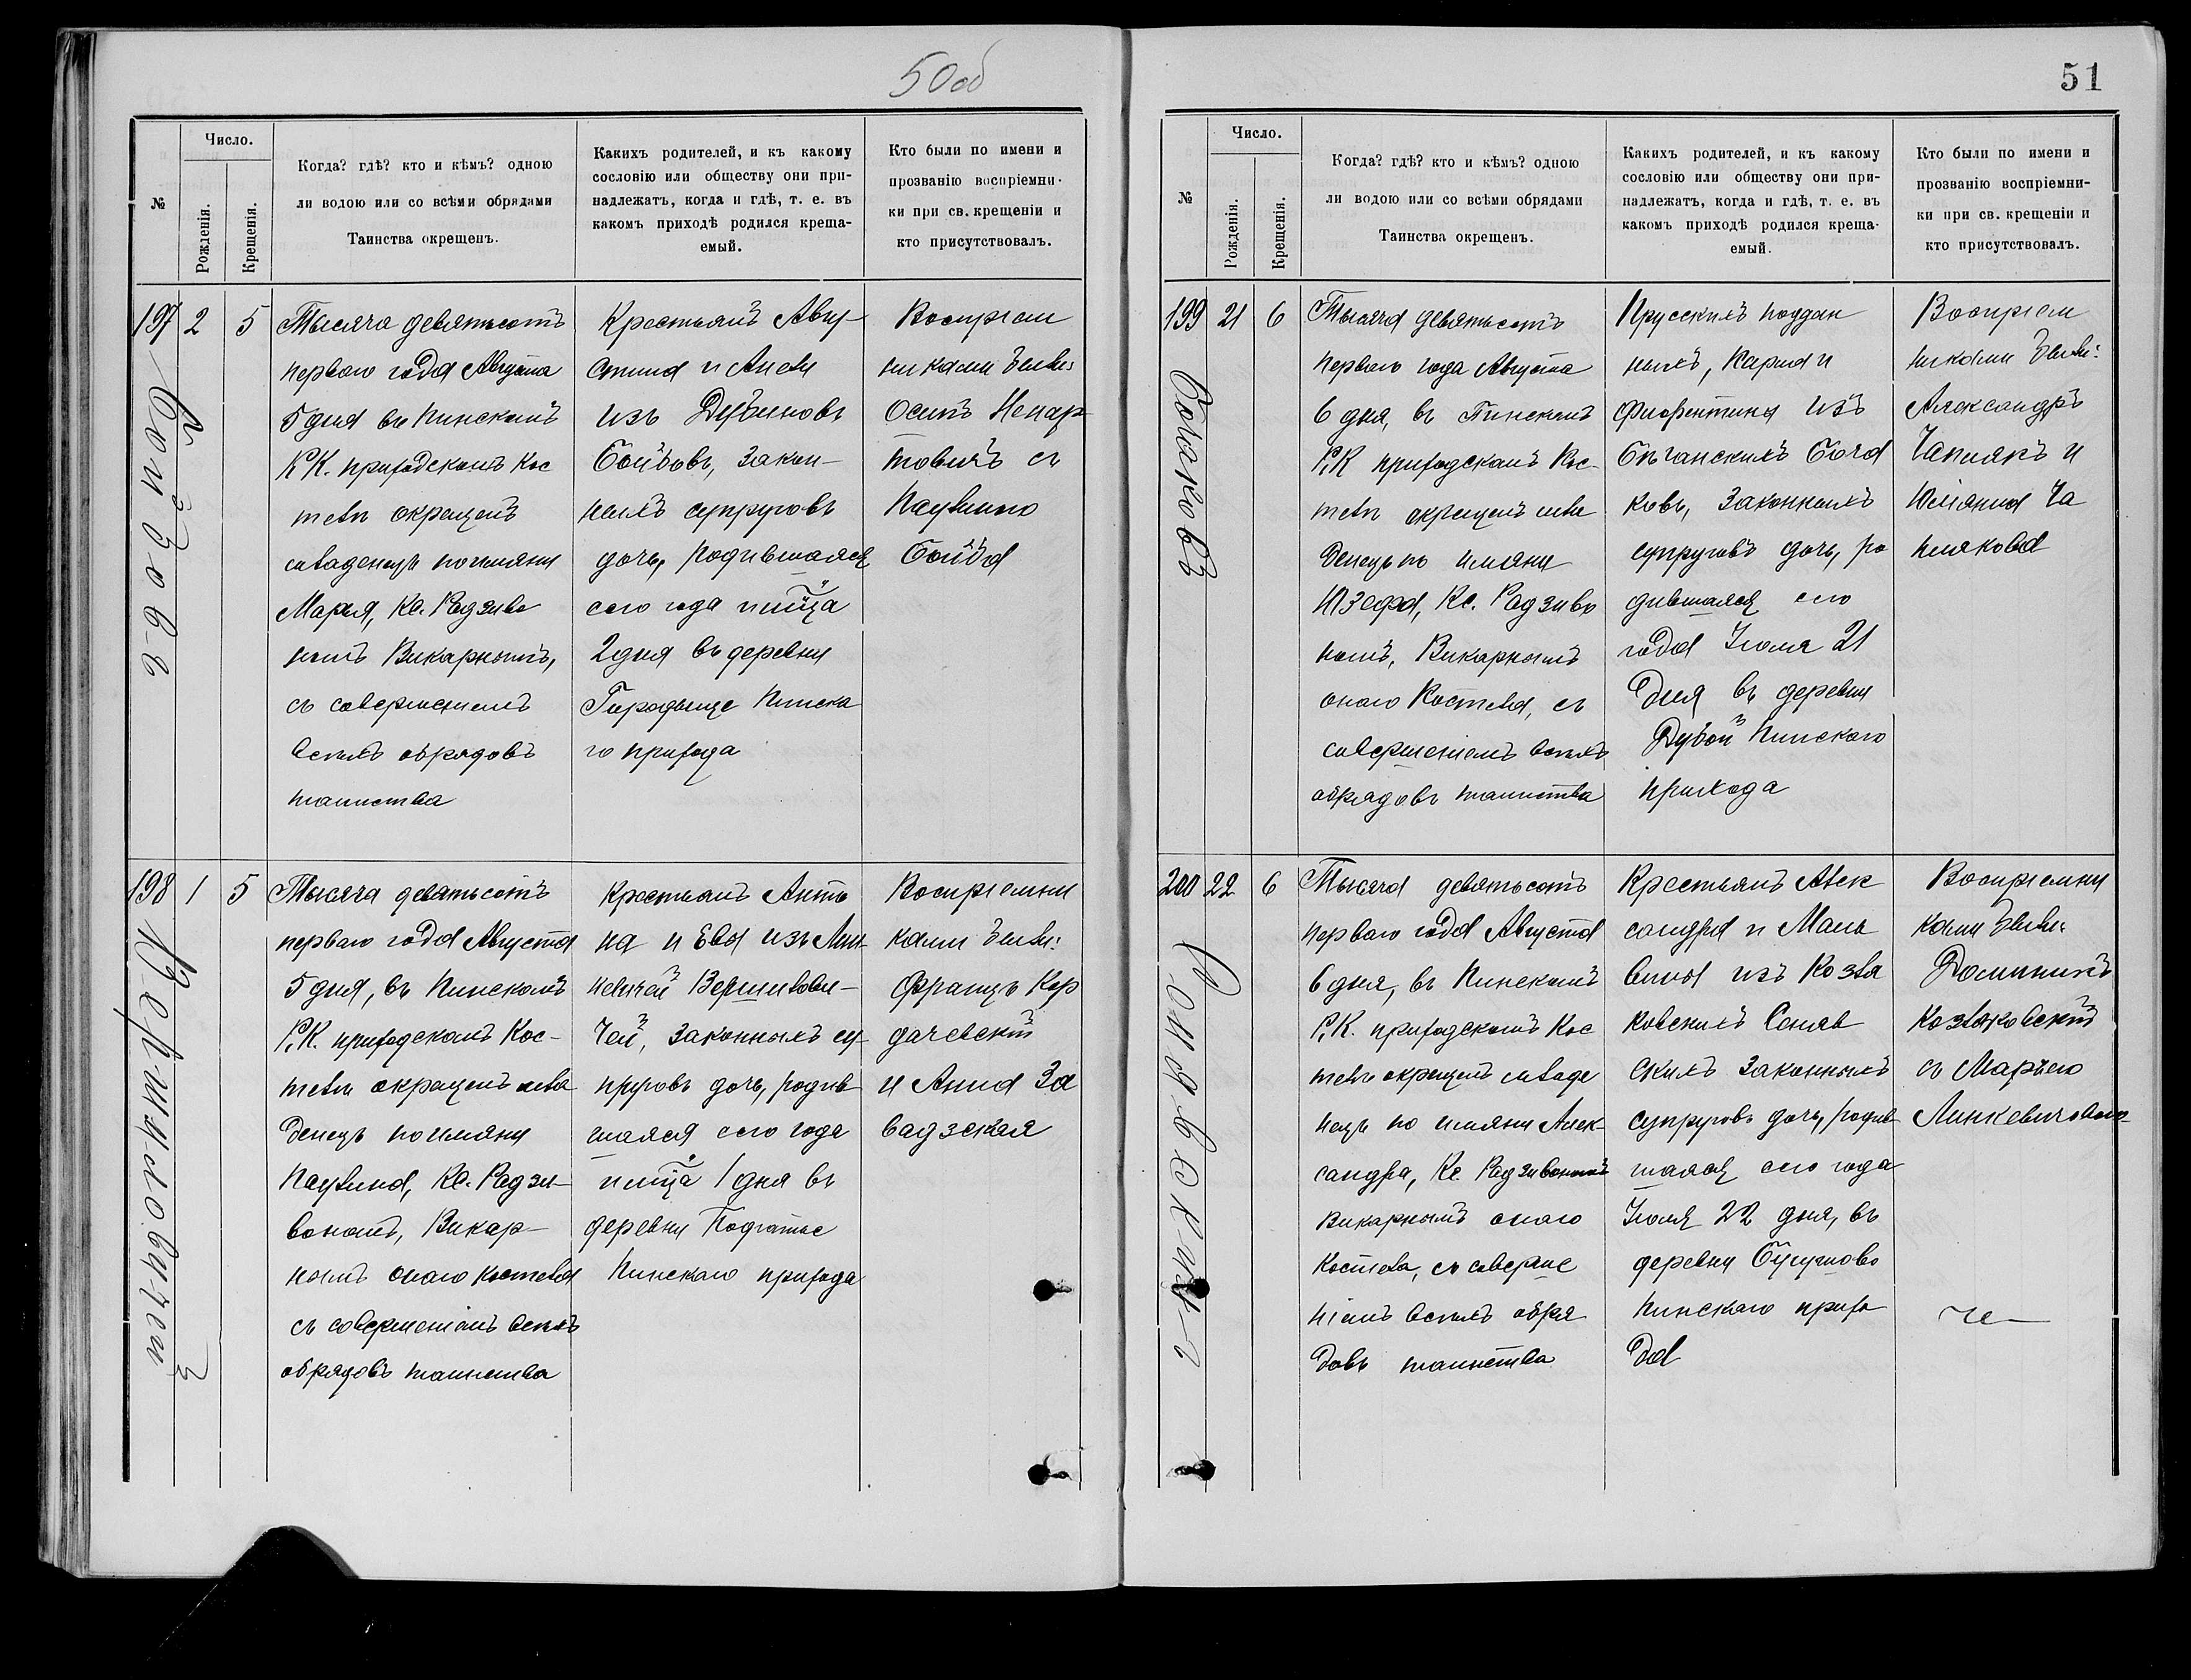 50об
№
Число.
Рожденія.
Крещенія.
Когда? гдѣ? кто и кѣмъ? одною
ли водою или со всѣми обрядами
Таинства окрещенъ.
Какихъ родителей, и къ какому
сословію или обществу они при-
надлежатъ, когда и гдѣ, т. е. въ
какомъ приходѣ родился креща-
емый.
Кто были по имени и
прозванію воспріемни-
ки при св. крещеніи и
кто присутствовалъ.
197
2
5
Тысяча девятьсотъ
перваго года Августа
5 дня въ Пинскомъ
Р.К. приходскомъ Кос
телѣ окрещенъ
младенецъ поимяни
Марія, Кс. Радзиво
номъ Викарнымъ,
съ совершеніемъ
всѣхъ обрядовъ
таинства
Крестьянъ Авгу-
стина и Анели
изъ Дубиновъ
Бойбовъ, закон-
ныхъ супруговъ
дочь, родившаяся
сего года
2 дня въ деревни
Городыще Пинска
го прихода
Воспріем
никами были:
Осипъ Ненар-
товичъ съ
Паулиною
Бойба
198
1
5
Тысяча девятьсотъ
перваго года Августа
5 дня, въ Пинскомъ
Р.К. приходскомъ Кос-
телѣ окрещенъ мла
денецъ поимяни
Паулина, Кс. Радзи-
вономъ, Викар-
нымъ онаго костела
съ совершеніемъ всѣхъ
обрядовъ таинства
Крестьянъ Анто
на и Евы изъ
Вершилови-
чей, законныхъ су-
пруговъ дочь, родив
шаяся сего года
1 дня въ
деревни
Пинскаго прихода
Воспріемни
ками были:
Францъ Кор
дачевскій
и Анна За
вадзская
Вершиловичей
51
№
Число.
Рожденія.
Крещенія.
Когда? гдѣ? кто и кѣмъ? одною
ли водою или со всѣми обрядами
Таинства окрещенъ.
Какихъ родителей, и къ какому
сословію или обществу они при-
надлежатъ, когда и гдѣ, т. е. въ
какомъ приходѣ родился креща-
емый.
Кто были по имени и
прозванію воспріемни-
ки при св. крещеніи и
кто присутствовалъ.
199
21
6
Тысяча девятьсотъ
перваго года Августа
6 дня, въ Пинскомъ
Р.К приходскомъ Кос-
телѣ окрещенъ мла
денецъ по имяни
Юзефа, Кс. Радзиво
номъ, Викарнымъ
онаго Костела, съ
совершеніемъ всѣхъ
обрядовъ таинства
Прусскихъ поддан
ныхъ, Карла и
Флорентины изъ
законныхъ
супруговъ дочь, ро
дившаяся сего
года Іюля 21
дня въ деревни
Дубой Пинскаго
прихода
Воспріем
никами были:
Александръ
Чаплякъ и
Юліанна Ча
плякова
200
22
6
Тысяча девятьсотъ
перваго года Августа
6 дня, въ Пинскомъ
Р.К. приходскомъ Кос
телѣ окрещенъ младе
нецъ по имяни Алек-
сандра, Кс. Радзивономъ
Викарнымъ онаго
Костела, съ соверше
ніемъ всѣхъ обря
довъ таинства
Крестьянъ Алек
сандра и Маль
вины изъ Козля
ковскихъ
законныхъ
супруговъ дочь, родив
шаяся сего года
Іюля 22 дня, въ
деревни
Пинскаго прихо
да
Воспріемни
ками были:
Доминикъ
Козляковскій
съ Маріею
Линкевичовою